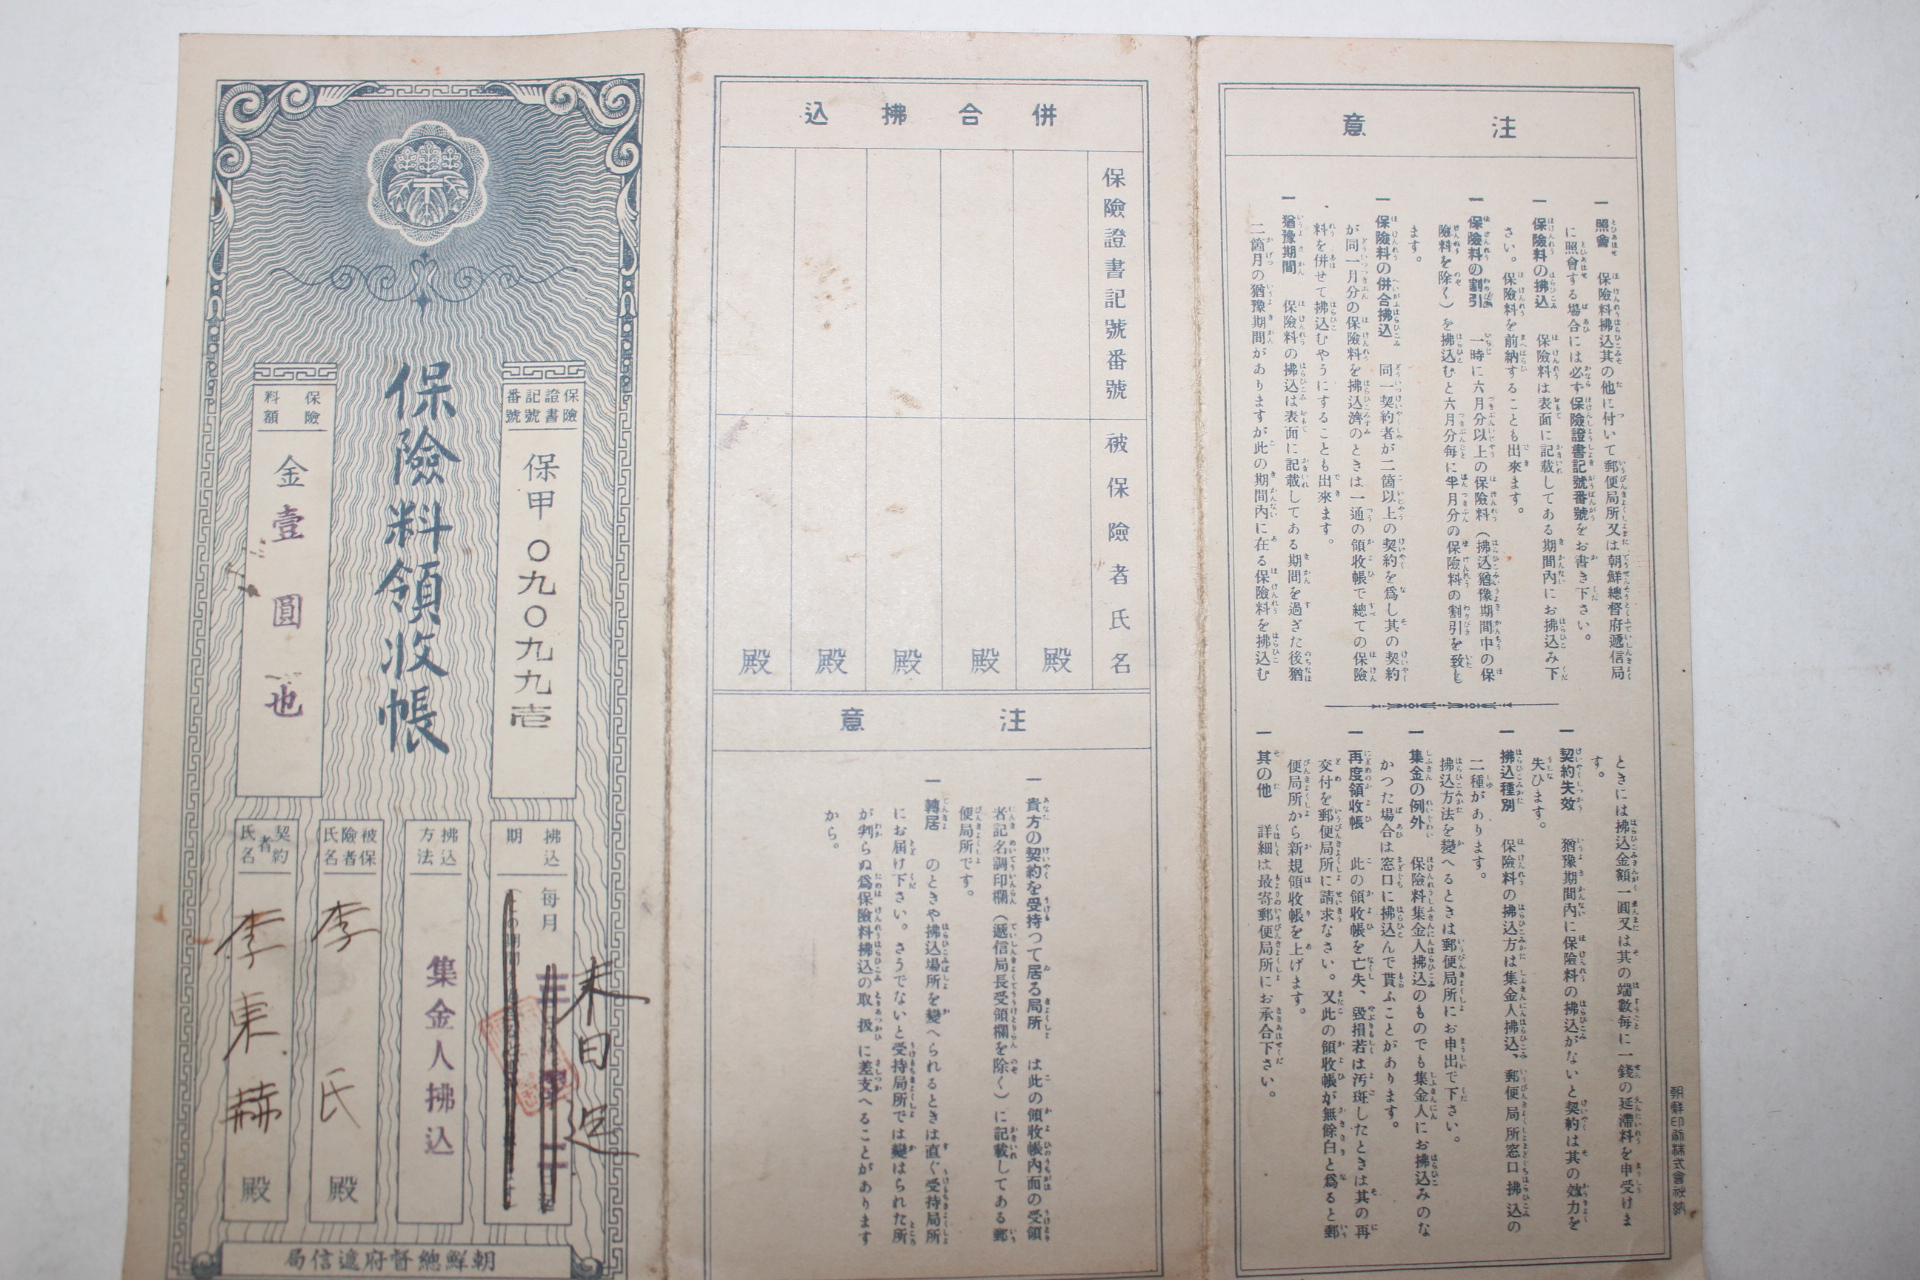 注意
一 照會 保險料拂込其の他に付いて郵便局所又は朝鮮總督府遞信局
に照會する場合には必ず保險證書記號番號をお書き下さい。
一 保險料の拂込 保險料は表面に記載してある期間內にお拂込み下
さい。保險料を前納することも出來ます。
一 保險料の割引 一時に六月分以上の保險料（拂込猶豫期間中の保
險料を除く）を拂込むと六月分每に半月分の保險料の割引を致し
ます。
一 保險料の併合拂込 同一契約者が二箇以上の契約を爲し其の契約
が同一月分の保險料を拂込濟のときは一通の領收帳で總ての保險
料を併せて拂込むやうにすることも出來ます。
一 猶豫期間 保險料の拂込は表面に記載してある期間を過ぎた後猶
二箇月の猶豫期間がありますが此の期間內に在る保險料を拂込む
ときには拂込金額一圓又は其の端數每に一錢の延滯料を申受けま
す。
一 契約失效 猶豫期間內に保險料の拂込がないと契約は其の效力を
失ひます。
一 拂込種別 保險料の拂込方は集金人拂込、郵便局所窓口拂込の
二種があります。
拂込方法を變へるときは郵便局所にお申出で下さい。
一 集金の例外 保險料集金人拂込のものでも集金人にお拂込みのな
かつた場合は窓口に拂込んで貰ふことがあります。
一 再度領收帳 此の領收帳を亡失、毀損若は汚斑したときは其の再
交付を郵便局所に請求なさい。又此の領收帳が無餘白と爲ると郵
便局所から新規領收帳を上げます。
一 其の他 詳細は最寄郵便局所にお承合下さい。
朝鮮印刷株式會社納
併合拂込
保險證書記號番號
被保險者氏名
殿
殿
殿
殿
殿
注意
一 貴方の契約を受持つて居る局所 は此の領收帳內面の受領
者記名調印欄（遞信局長受領欄を除く）に記載してある郵
便局所です。
一 轉居 のときや拂込場所を變へられるときは直ぐ受持局所
にお届け下さい。さうでないと受持局所では變はられた所
が判らぬ爲保險料拂込の取扱に差支へることがあります
から。
保險證書記號番號
保甲〇九〇九九壱
保險料領收帳
保險料額
金壹圓也
拂込期
每月
末日迄
拂込方法
集金人拂込
被保險者氏名
李氏
殿
契約者氏名
李東赫
殿
朝鮮總督府遞信局